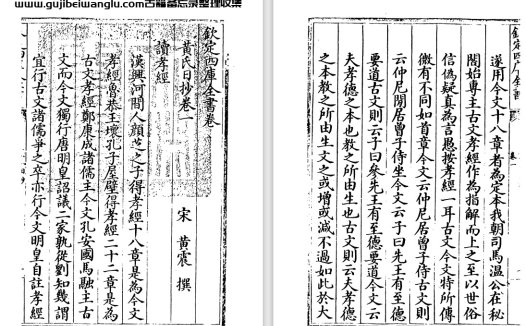 www.gujibeiwanglu.com古籍备忘录整理收集
欽定四庫全書卷一
黃氏日抄卷一
宋 黃震 撰
讀孝經
漢興河間人顏芝之子得孝經十八章是為今文
孝經魯恭王壞孔子屋壁得孝經二十二章是為
古文孝經鄭康成諸儒主今文孔安國馬融主古
文而今文獨行唐明皇詔議二家孰從劉知幾謂
宜行古文諸儒爭之卒亦行今文明皇自註孝經
欽定四庫全書
遂用今文十八章者為定本我朝司馬溫公在秘
閣始專主古文孝經作為指解而上之至以世俗
信偽疑真為言愚按孝經一耳古文今文特所傳
微有不同如首章今文云仲尼居曾子侍古文則
云仲尼閒居曾子侍坐今文云子曰先王有至德
要道古文則云子曰參先王有至德要道今文云
夫孝德之本也教之所由生也古文則云夫孝德
之本教之所由生文之或增或減不過如此於大